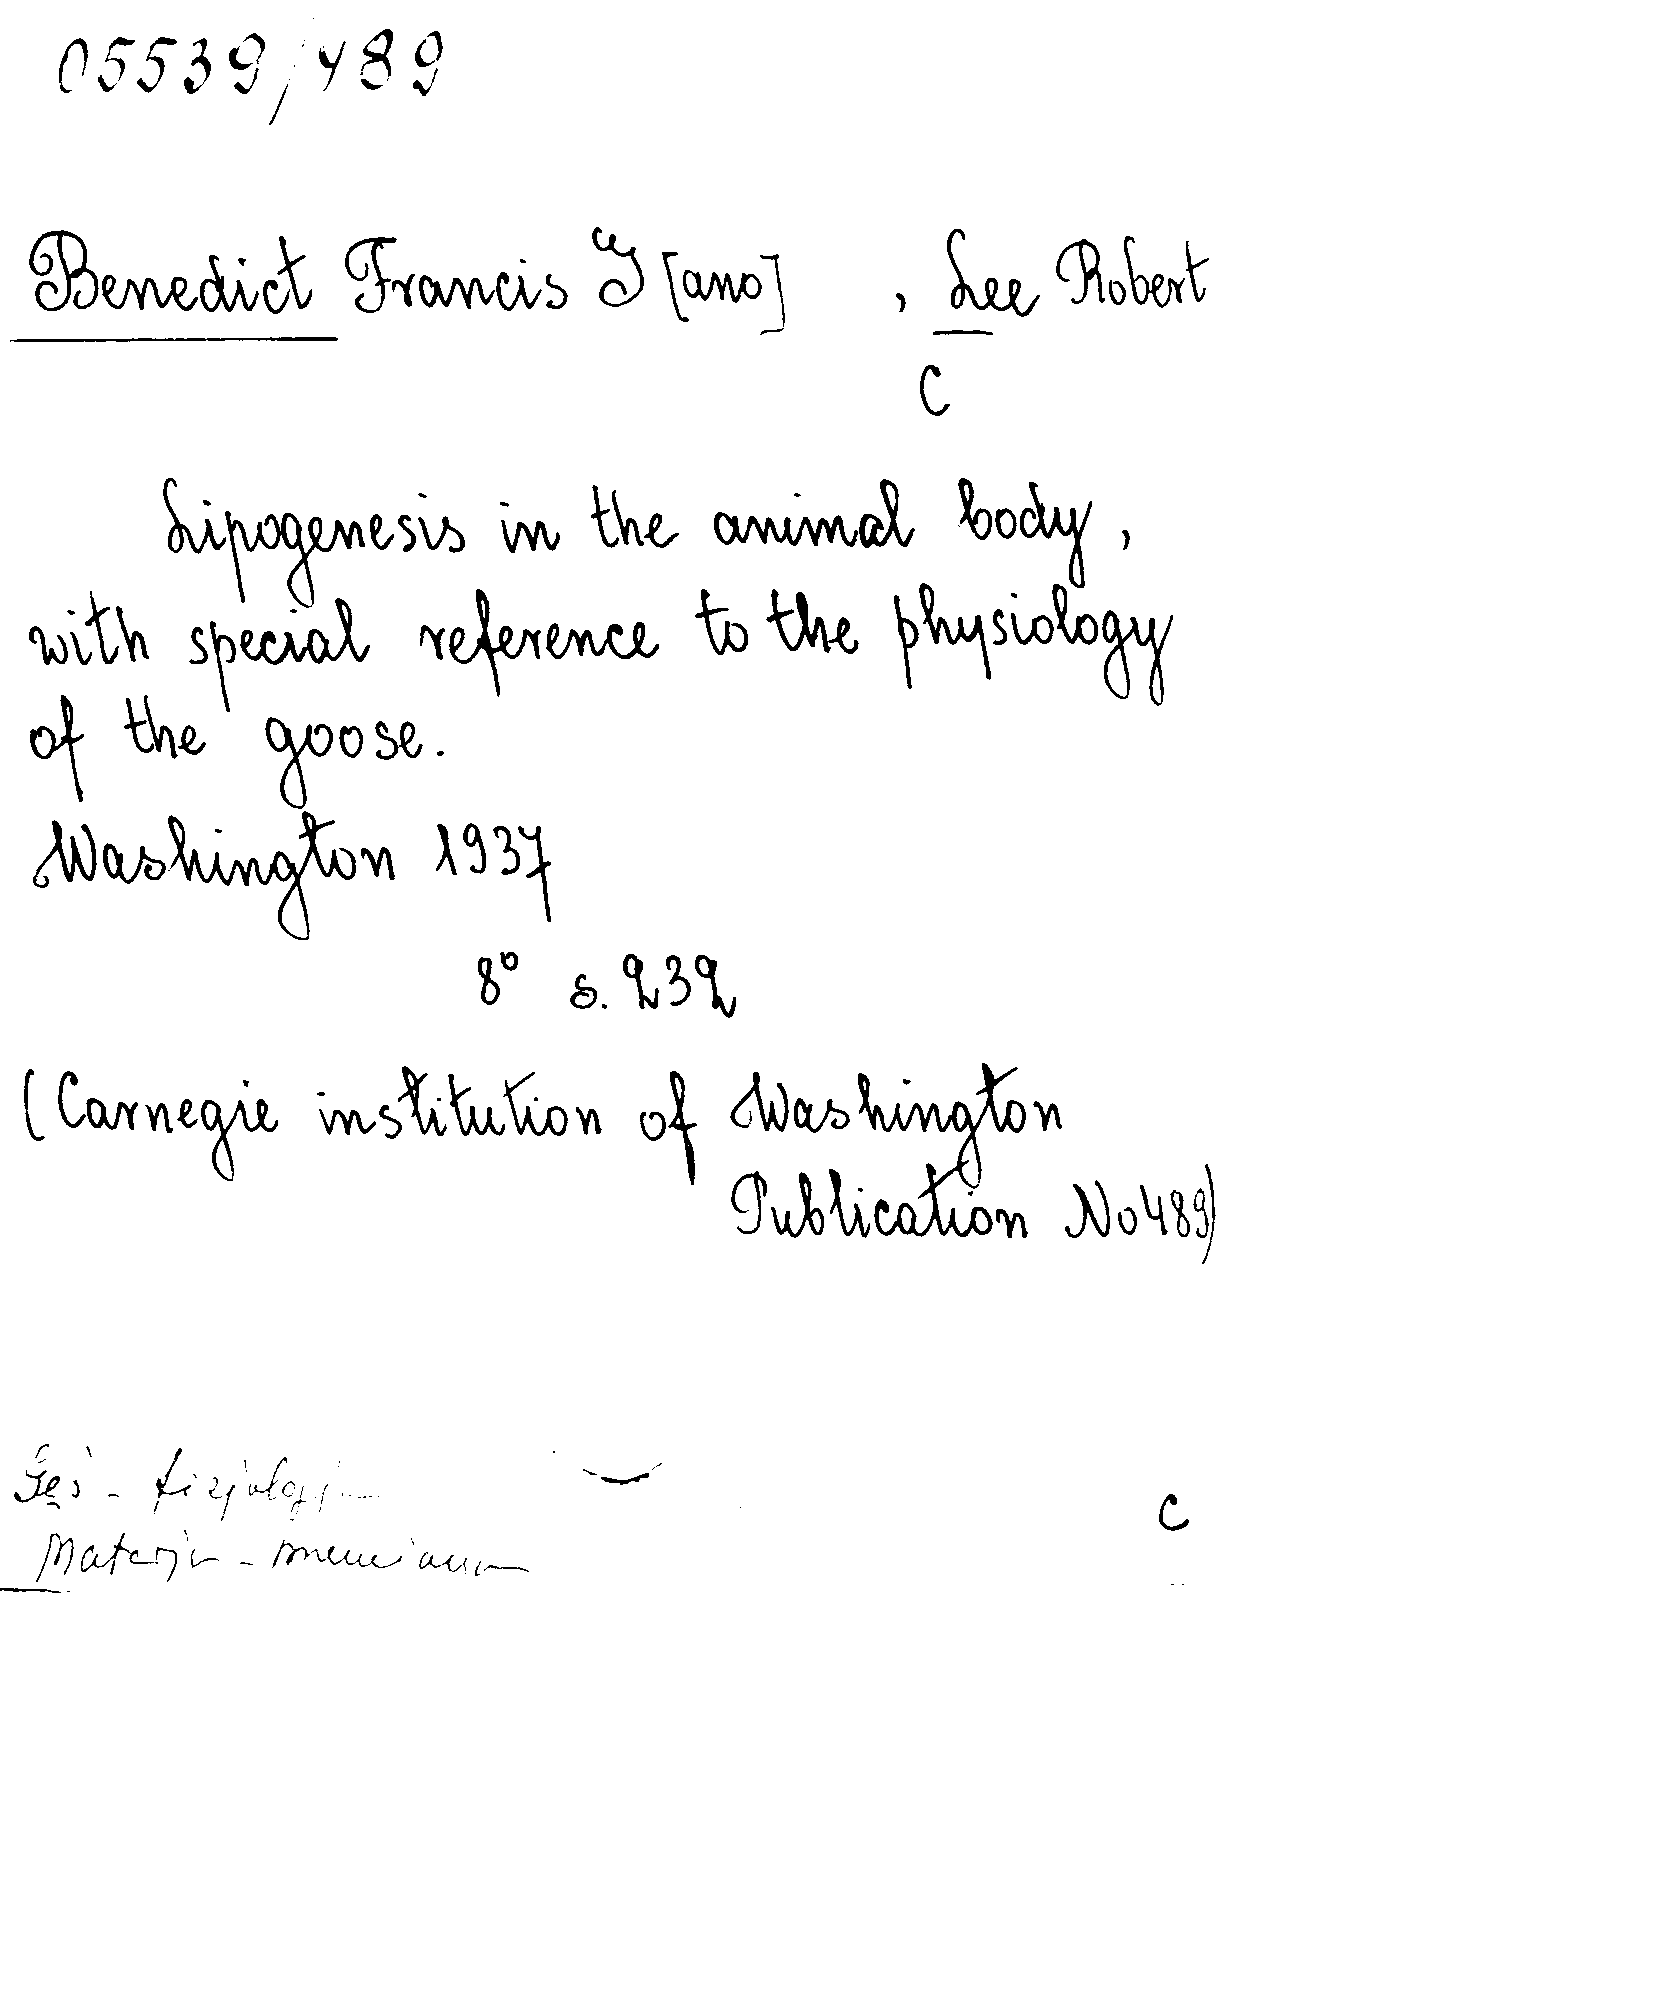 05539/489
Benedict Francis G [ano] , Lee Robert
C
Lipogenesis in the animal body,
with special reference to the physiology
of the goose.
Washington 1937
8° s. 232
(Carnegie institution of Washington
Publication No 489)
Gęś - fizjologia
C
Materji - przemiana